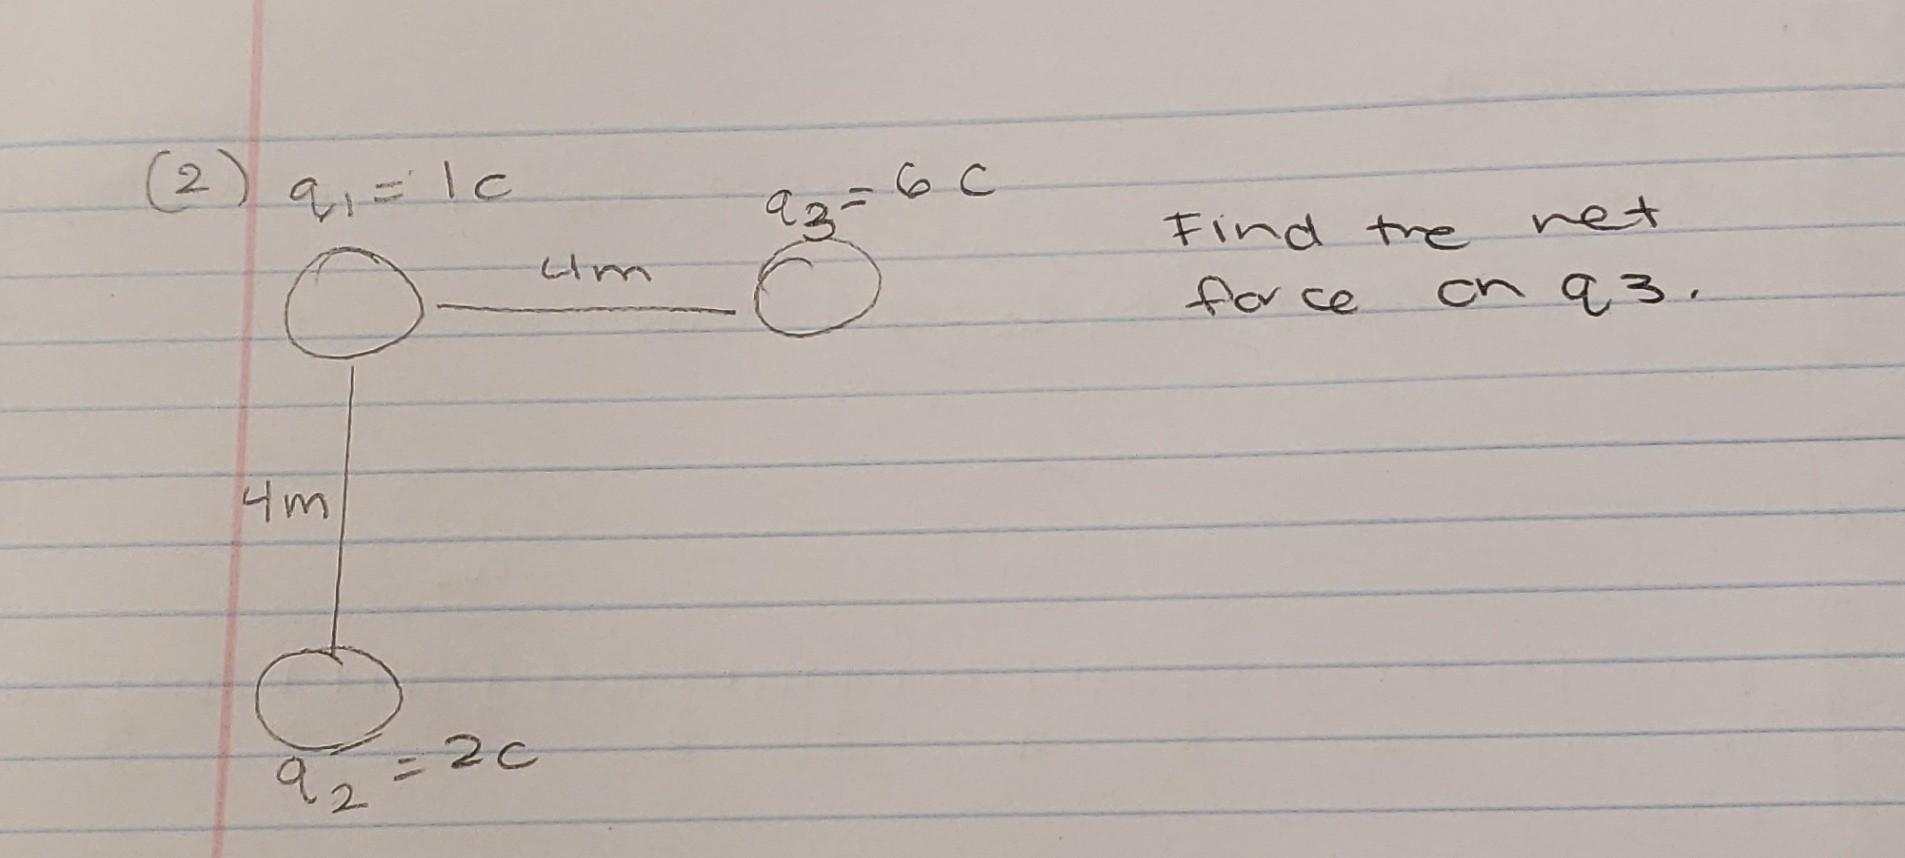 (2) q1 = 1c
q3 = 6 c
Find the net
4m
force on q3.
4m
q2 = 2c